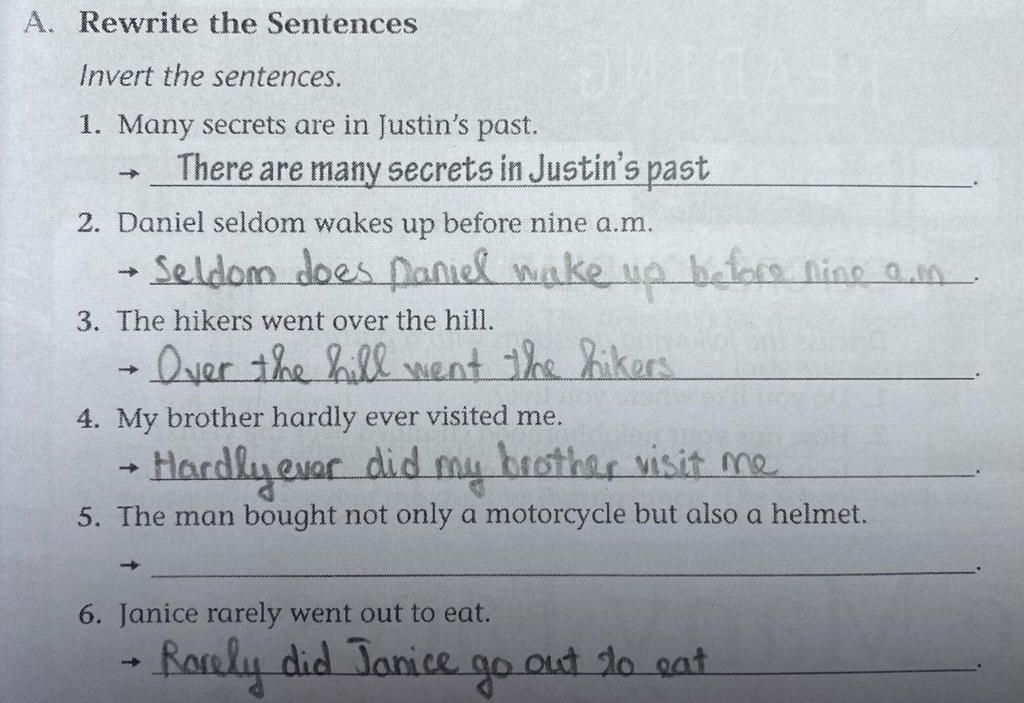 A. Rewrite the Sentences
Invert the sentences.
1. Many secrets are in Justin's past.
→ There are many secrets in Justin's past.
2. Daniel seldom wakes up before nine a.m.
→ Seldom does Daniel wake up before nine a.m.
3. The hikers went over the hill.
→ Over the hill went the hikers.
4. My brother hardly ever visited me.
→ Hardly ever did my brother visit me.
5. The man bought not only a motorcycle but also a helmet.
→ .
6. Janice rarely went out to eat.
→ Rarely did Janice go out to eat.